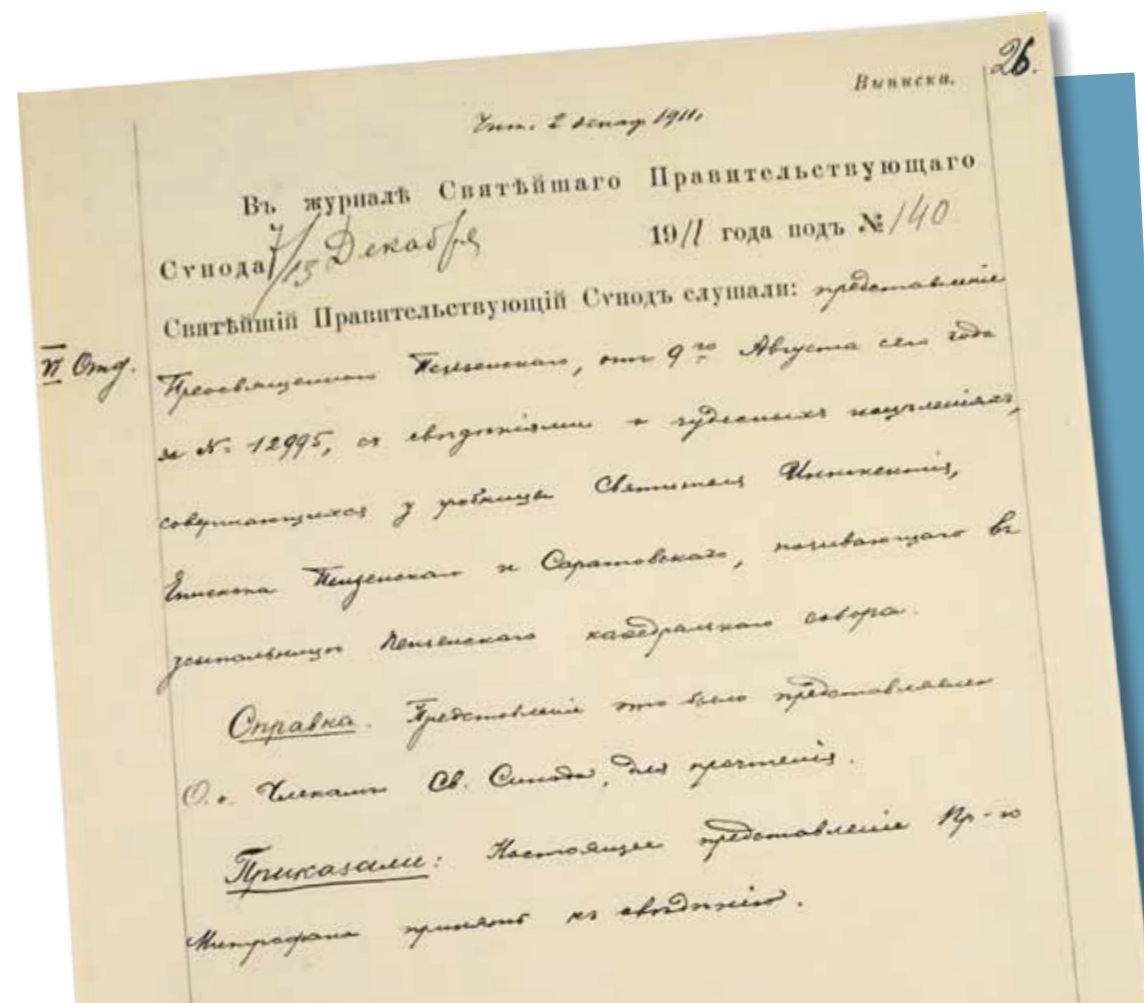 26.
Выписка.
Чит. 2 декаб 1911
Въ журналѣ Святѣйшаго Правительствующаго
Сѵнода 7/13 Декабря 1911 года подъ № 140
Святѣйшій Правительствующій Сѵнодъ слушали: представленіе
II Отд.
Преосвященнаго Пензенскаго, отъ 9го Августа сего года
за № 12995, съ свѣдѣніями о чудесныхъ исцѣленіяхъ,
совершающихся у гробницы Святителя Иннокентія,
Епископа Пензенскаго и Саратовскаго, почивающаго въ
усыпальницѣ Пензенскаго каѳедральнаго собора.
Справка. Представленіе это было представляемо
О.о. Членамъ Св. Синода, для прочтенія.
Приказали: Настоящее представленіе Пр-го
Митрофана принять къ свѣдѣнію.